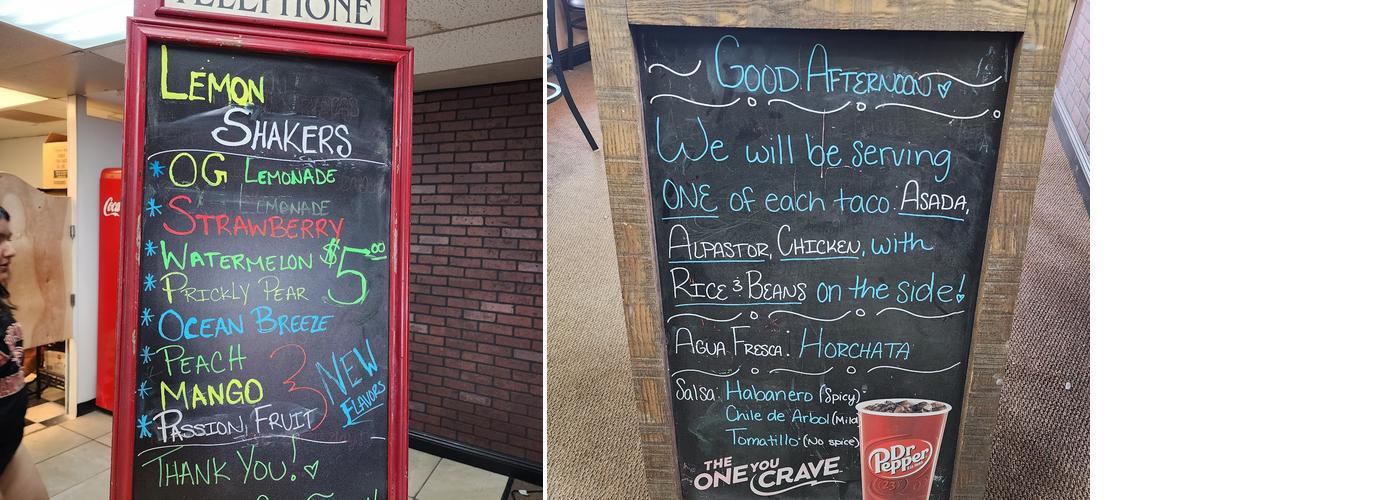 TELEPHONE
LEMON
SHAKERS
* OG LEMONADE
LEMONADE
* STRAWBERRY
* WATERMELON $5.00
* PRICKLY PEAR
* OCEAN BREEZE
* PEACH
* MANGO
* PASSION FRUIT
3 NEW
FLAVORS
THANK YOU!
Coca
GOOD AFTERNOON
We will be serving
ONE of each taco. ASADA,
ALPASTOR, CHICKEN, with
RICE & BEANS on the side!
AGUA FRESCA: HORCHATA
Salsa: Habanero (Spicy)
Chile de Arbol (Mild
Tomatillo (No spice)
THE
ONE YOU
CRAVE
Dr
Pepper
23